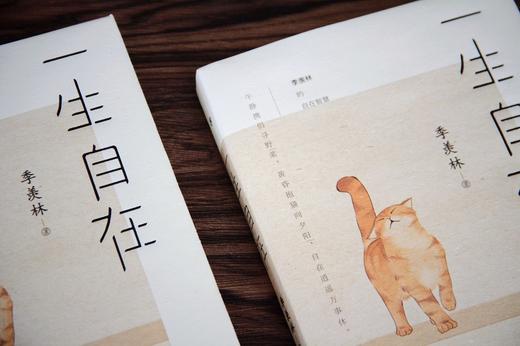 一生自在
季羡林 著
季羡林
的
自在智慧
午静携侣寻野菜，黄昏抱猫向夕阳，自在逍遥万事休。
一生自
季羡林 著